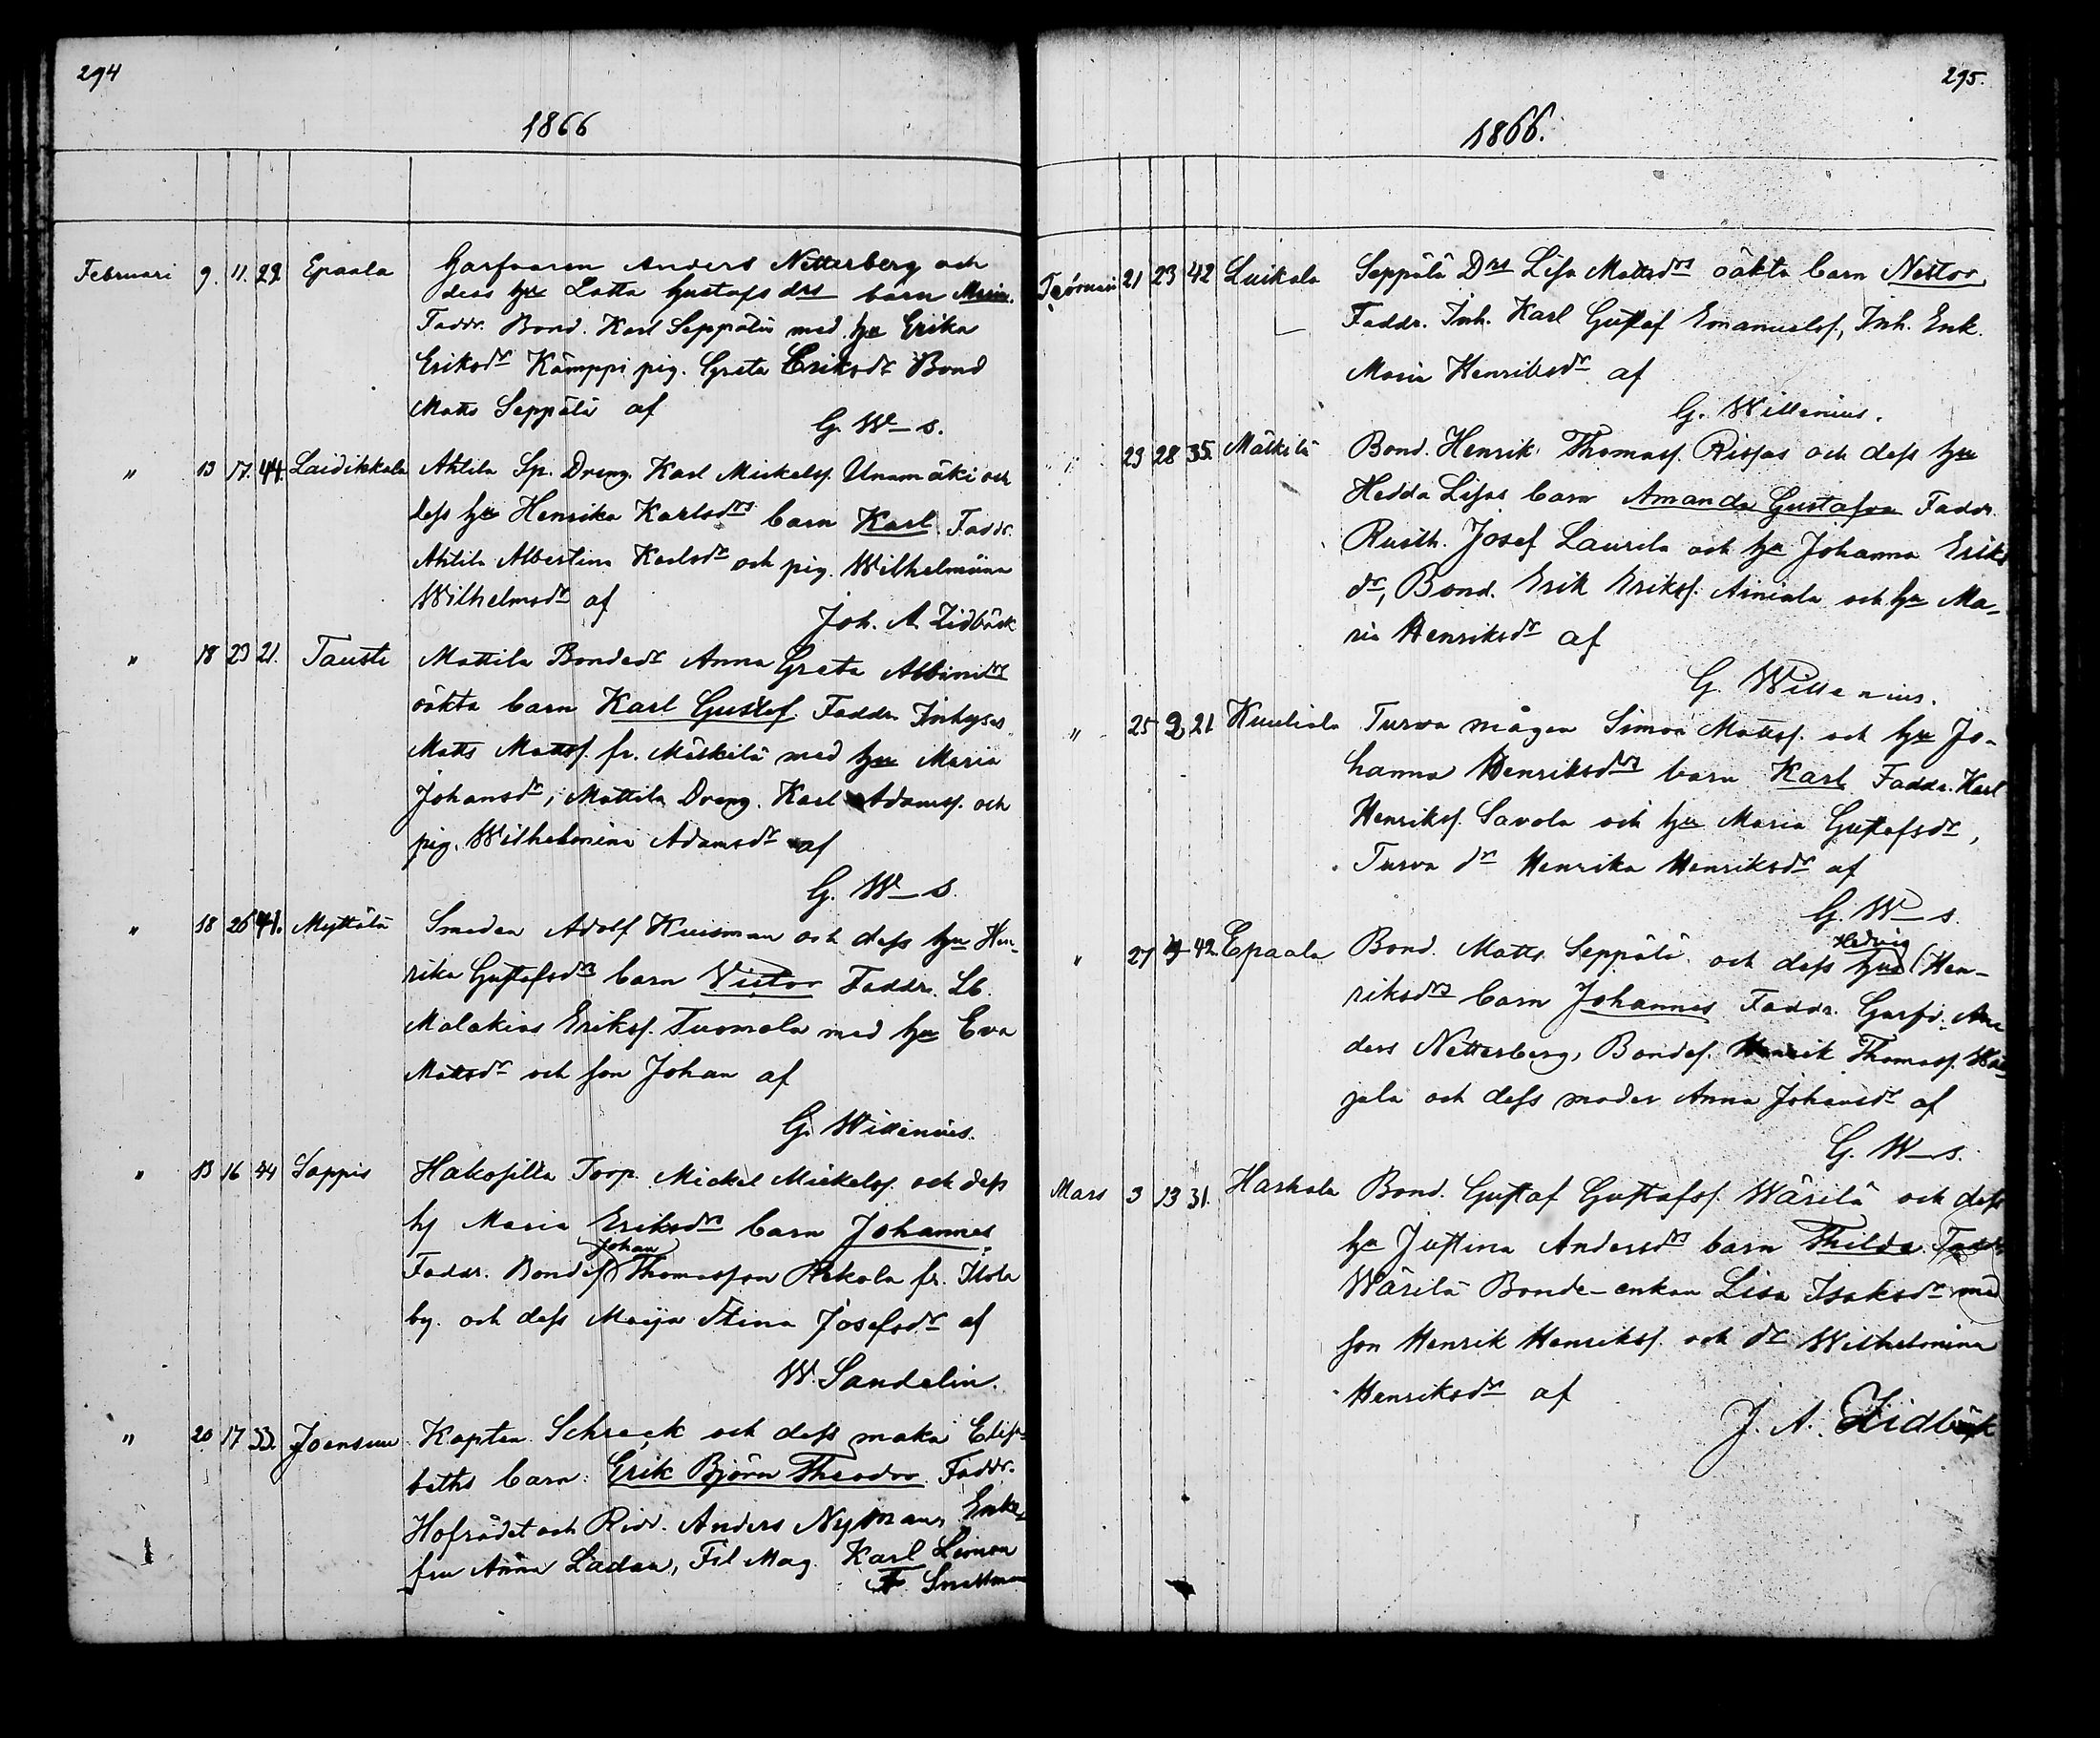 294
1866
Februari 9. 11. 29. Epaala Garfvaren Anders Netterberg och
dess hu Lotta Gustafsdrs barn Maria.
Faddr. Bond. Karl Seppälä med hu Erika
Eriksdr Kämppi pig. Greta Eriksdr Bond
Matts Seppälä af
G. W-s.
" 13 17. 44. Laidikkala Ahtila Sp. Dreng. Karl Mickelss. Unnmäki och
dess hu Henrika Karlsdrs barn Karl. Faddr.
Ahtila Albertina Karlsdr och pig. Wilhelmiina
Wilhelmsdr af
Joh. A. Lidbäck
" 18 23 21. Tausti Mattila Bondedr Anna Greta Albinsdrs
oäkta barn Karl Gustaf. Faddr. Inhyses
Matts Mattss. fr. Mälkilä med hu Maria
Johansdr, Mattila Dreng. Karl Adamss. och
pig. Wilhelmina Adamsdr af
G. W-s.
" 18 26 41. Myttälä Smeden Adolf Kuisman och dess hu Hen-
rika Gustafsdrs barn Victor Faddr. Lb.
Malakias Erikss. Tuomola med hu Eva
Mattsdr och son Johan af
G. Willenius.
" 13 16 44 Sappis Hakosilta Torp. Mickel Mickelss. och dess
h Maria Eriksdrs barn Johannes.
Johan
Faddr. Bondes. Thomasson Rekola fr. Itola
by. och dess Maija Stina Josefsdr af
W. Sandelin.
" 20 17 33. Joensuu Kapten Schreck och dess maka Elisa-
beths barn: Erik Björn Theodor. Faddr.
Hofrådet och Ridr. Anders Nyman, Enke-
fru Anna Ladau, Fil Mag. Karl Leinon
Snellman
295.
1866.
Februari 21 23 42 Luikala Seppälä Drs Lisa Mattsdrs oäkta barn Nestor,
Faddr. Inh. Karl Gustaf Emanuelss., Inh. Enk.
Maria Henriksdr af
G. Willenius.
" 23 28 35. Mälkilä Bond. Henrik Thomass. Rissas och dess hu
Hedda Lisas barn Amanda Gustafva Faddr.
Rusth. Josef Laurila och hu Johanna Eriks
dr, Bond. Erik Erikss. Ainiala och hu Ma-
ria Henriksdr af
G. Willenius.
" 25 2 21 Kuuliala Turva mågen Simon Mattss. och hu Jo-
hanna Henriksdrs barn Karl Faddr. Karl
Henrikss. Savola och hu Maria Gustafsdr,
Turva dr Henrika Henriksdr af
G. W-s.
Hedvig
" 27 4 42. Epaala Bond. Matts Seppälä och dess hus Hen-
riksdrs barn Johannes Faddr. Garfv. An-
ders Netterberg, Bondes. Henrik Thomass.
jala och dess moder Anna Johansdr af
G. W-s.
Mars 3 13 31. Harhala Bond. Gustaf Gustafss. Wärilä och dess
hu Justina Andersdrs barn Thilda. Faddr
Wärilä Bonde-enkan Lisa Isaksdr med
son Henrik Henrikss. och dr Wilhelmina
Henriksdr af
J. A. Lidbäck